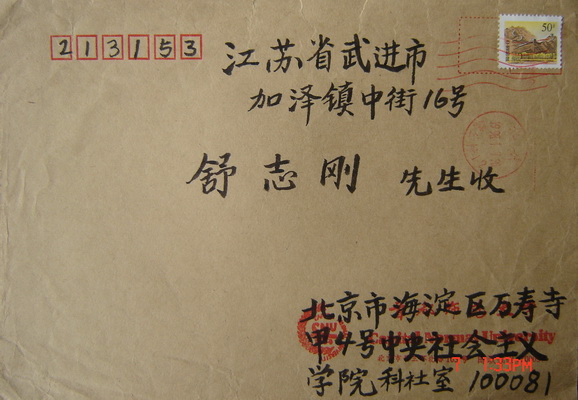 213153
50分
江苏省武进市
加泽镇中街16号
舒志刚 先生收
北京市海淀区万寿寺
甲4号中央社会主义
学院科社室 100081
CNU
University
1:33PM